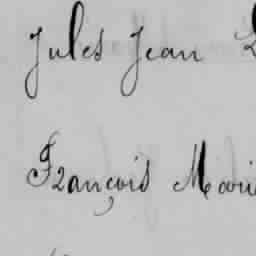 Jules Jean
François Marie